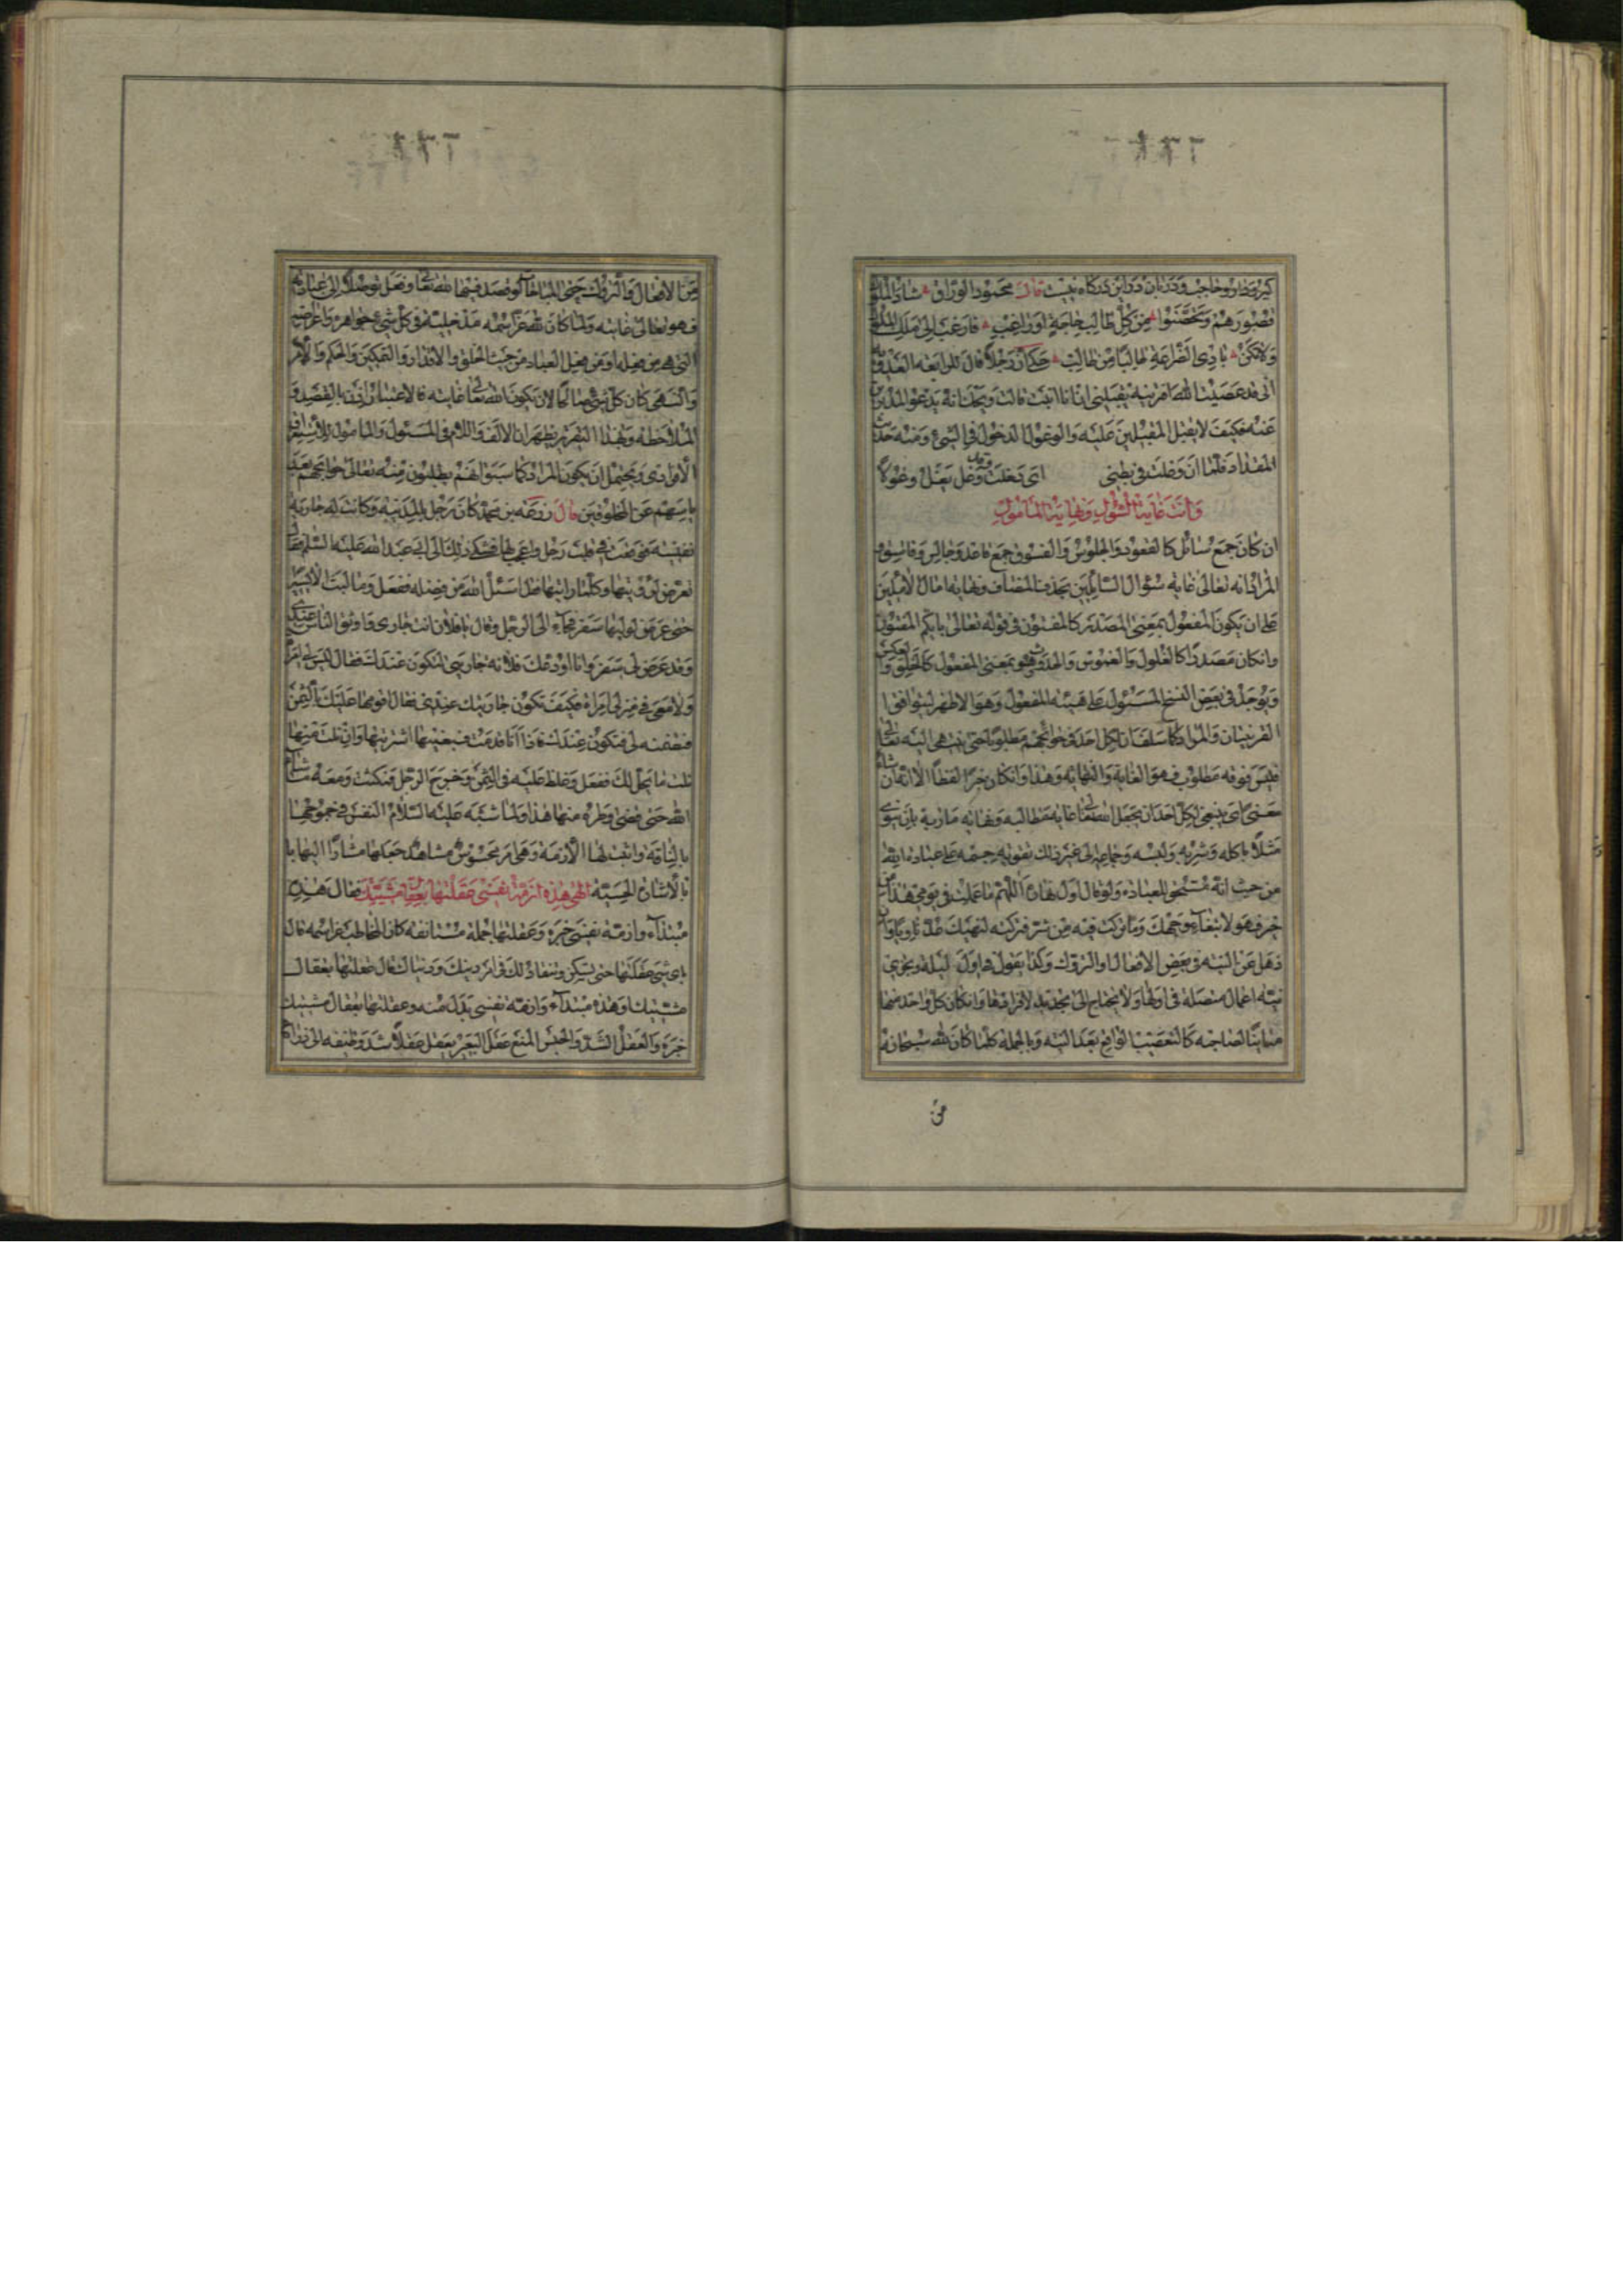 كبر و دار و حاجب و دربان درين دركاه نيست قال محمود الوراق شاد الملوك
قصورهم وتحصنوا من كل طالب حاجة او راغب فارغب الى ملك الملوك
ولا تكن يا ذى الضراعة طالبا من طالب حكى ان رجلا قال لرابعة العدوية
انى قد عصيت الله افترينه يقبلنى ان انا تبت قالت ويحك انه يدعو المدبرين
عنه فكيف لا يقبل المقبلين عليه والوغول الدخول فى الشئ ومنه حديث
المقداد فلما ان وغلت فى بطنى اى دخلت وغل يغل وغولا
وانت غاية السئول ونهاية المأمول
ان كان جمع سائل كالقعود والجلوس والفسوق جمع قاعد وجالس وفاسق
المراد انه تعالى غاية سؤال السائلين بحذف المضاف ونهاية امال الآملين
على ان يكون المفعول بمعنى المصدر كالمفتون فى قوله تعالى بايكم المفتون
وان كان مصدرا كالغلول والغموس والحدوث فهو بمعنى المفعول كالخلق
ويوجد فى بعض النسخ المسئول على هيئة المفعول وهو الاظهر ليتوافقا
القرينتان والمراد كما سلف ان لكل احد فى حوائجهم مطلوبا حتى ينتهى اليه تعالى
فليس فوقه مطلوب فهو الغاية والنهاية وهذا وان كان خبرا لفظا الا انه انشاء
معنى اى ينبغى لكل احد ان يجعل الله تعالى غاية مطالبه ونهاية مآربه بان ينوى
مثلا باكله وشربه ولبسه وجماعه الى غير ذلك تقوية جسمه على عبادة الله
من حيث انه مستحق للعبادة ولو قال اول نهاره اللهم ما عملت فى يومى هذا من
خير فهو لابتغاء وجهك وما تركت فيه من شر فتركته لنهيك عد ناويا وان
ذهل عن النية فى بعض الافعال او التروك وكذا يقول فى اول ليلة ويجزى
نيته اعمال متصلة فى اولها ولا يحتاج الى تجديد لافرادها وان كان كل واحد منها
مباينا لصاحبه كالتعقيب الواقع بعد النية وبالجملة كلما كان لله سبحانه
من
من الافعال والتروك حتى المباحات لو قصد فيها الله تعالى وفعل توصلا الى عباداته
فهو تعالى غايته ولما كان لله عز اسمه مدخلية فى كل شئ جواهره واعراضه
التى هى من فعله او من فعل العباد من حيث الخلق والاقدار والتمكين والحكم والامر
والنهى كان كل شئ صالحا لان يكون الله تعالى غايته فالاعتبار اذن بالقصد و
الملاحظة وبهذا التقرير يظهر ان الالف واللام فى المسئول والمأمول للاستغراق
الافرادى ويحتمل ان يكون المراد كما سبق انهم يطلبون منه تعالى حوائجهم بعد
ياسهم عن المخلوقين قال رزقه بن محمد كان رجل بالمدينة وكانت له جارية
نفيسة فوقعت فى قلب رجل واعجب بها فشكى ذلك الى ابى عبد الله عليه السلم فقال
تعرض لرؤيتها وكلما رايتها فقل اسئل الله من فضله ففعل وما لبث الا يسيرا
حتى عرض لوليها سفر فجاء الى الرجل وقال يا فلان انت جارى واوثق الناس عندى
وقد عرض لى سفر وانا اودعك فلانة جاريتى لتكون عندك فقال ليس لى امراة
ولا معى فى منزلى امراة فكيف تكون جاريتك عندى فقال اقومها عليك بالثمن
وتضمنه لى فتكون عندك فاذا انا قدمت فبعنيها اشتريتها وان نلت منها
نلت ما يحل لك ففعل وغلظ عليه فى الثمن وخرج الرجل فمكثت ومعه ما شاء
الله حتى قضى وطره منها هذا ولما شبه عليه السلام النفس فى جموحها
بالناقة واثبت لها الازمة وهى امر محسوس مشاهد جعلها مشارا اليها
بالاشارة الحسية الهى هذه ازمة نفسى عقلتها بعقال مشيتك فقال هذه
مبتداء وازمة نفسى خبره وعقلتها جملة مستانفة كان المخاطب عز اسمه قال
باى شئ عقلتها حتى تسكن وتنقاد لك فى امر دينك ودنياك فقال عقلتها بعقال
مشيتك او هذه مبتداء وازمة نفسى بدل منه وعقلتها بعقال مشيتك
خبره والعقل الشد والحبس المنع عقل البعير يعقل عقلا شد وظيفه الى ذراعه